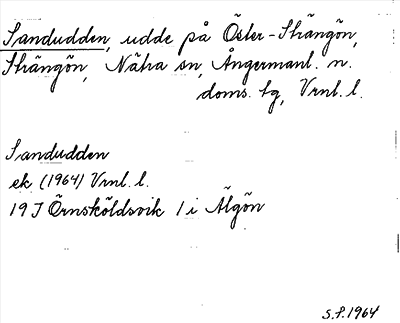 Sandudden, udde på Öster-Strängön,
Strängön, Nätra sn, Ångermanl. n.
doms. tg, Vrnl. l.
Sandudden
ek (1964) Vrnl. l.
19 J Örnsköldsvik 1 i Älgön
S.P. 1964